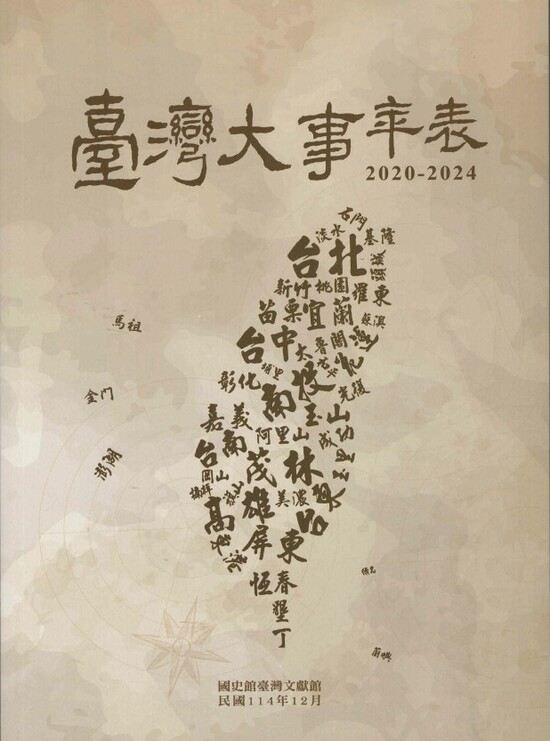 臺灣大事年表
2020-2024
石門
淡水
基隆
台北
頭城
新竹
桃園
羅東
苗栗
宜蘭
蘇澳
台中
太魯閣
彰化
南投
光復
嘉義
玉山
阿里山
台南
茂林
岡山
旗山
美濃
高雄
屏東
恆春
墾丁
馬祖
金門
澎湖
蘭嶼
國史館臺灣文獻館
民國114年12月